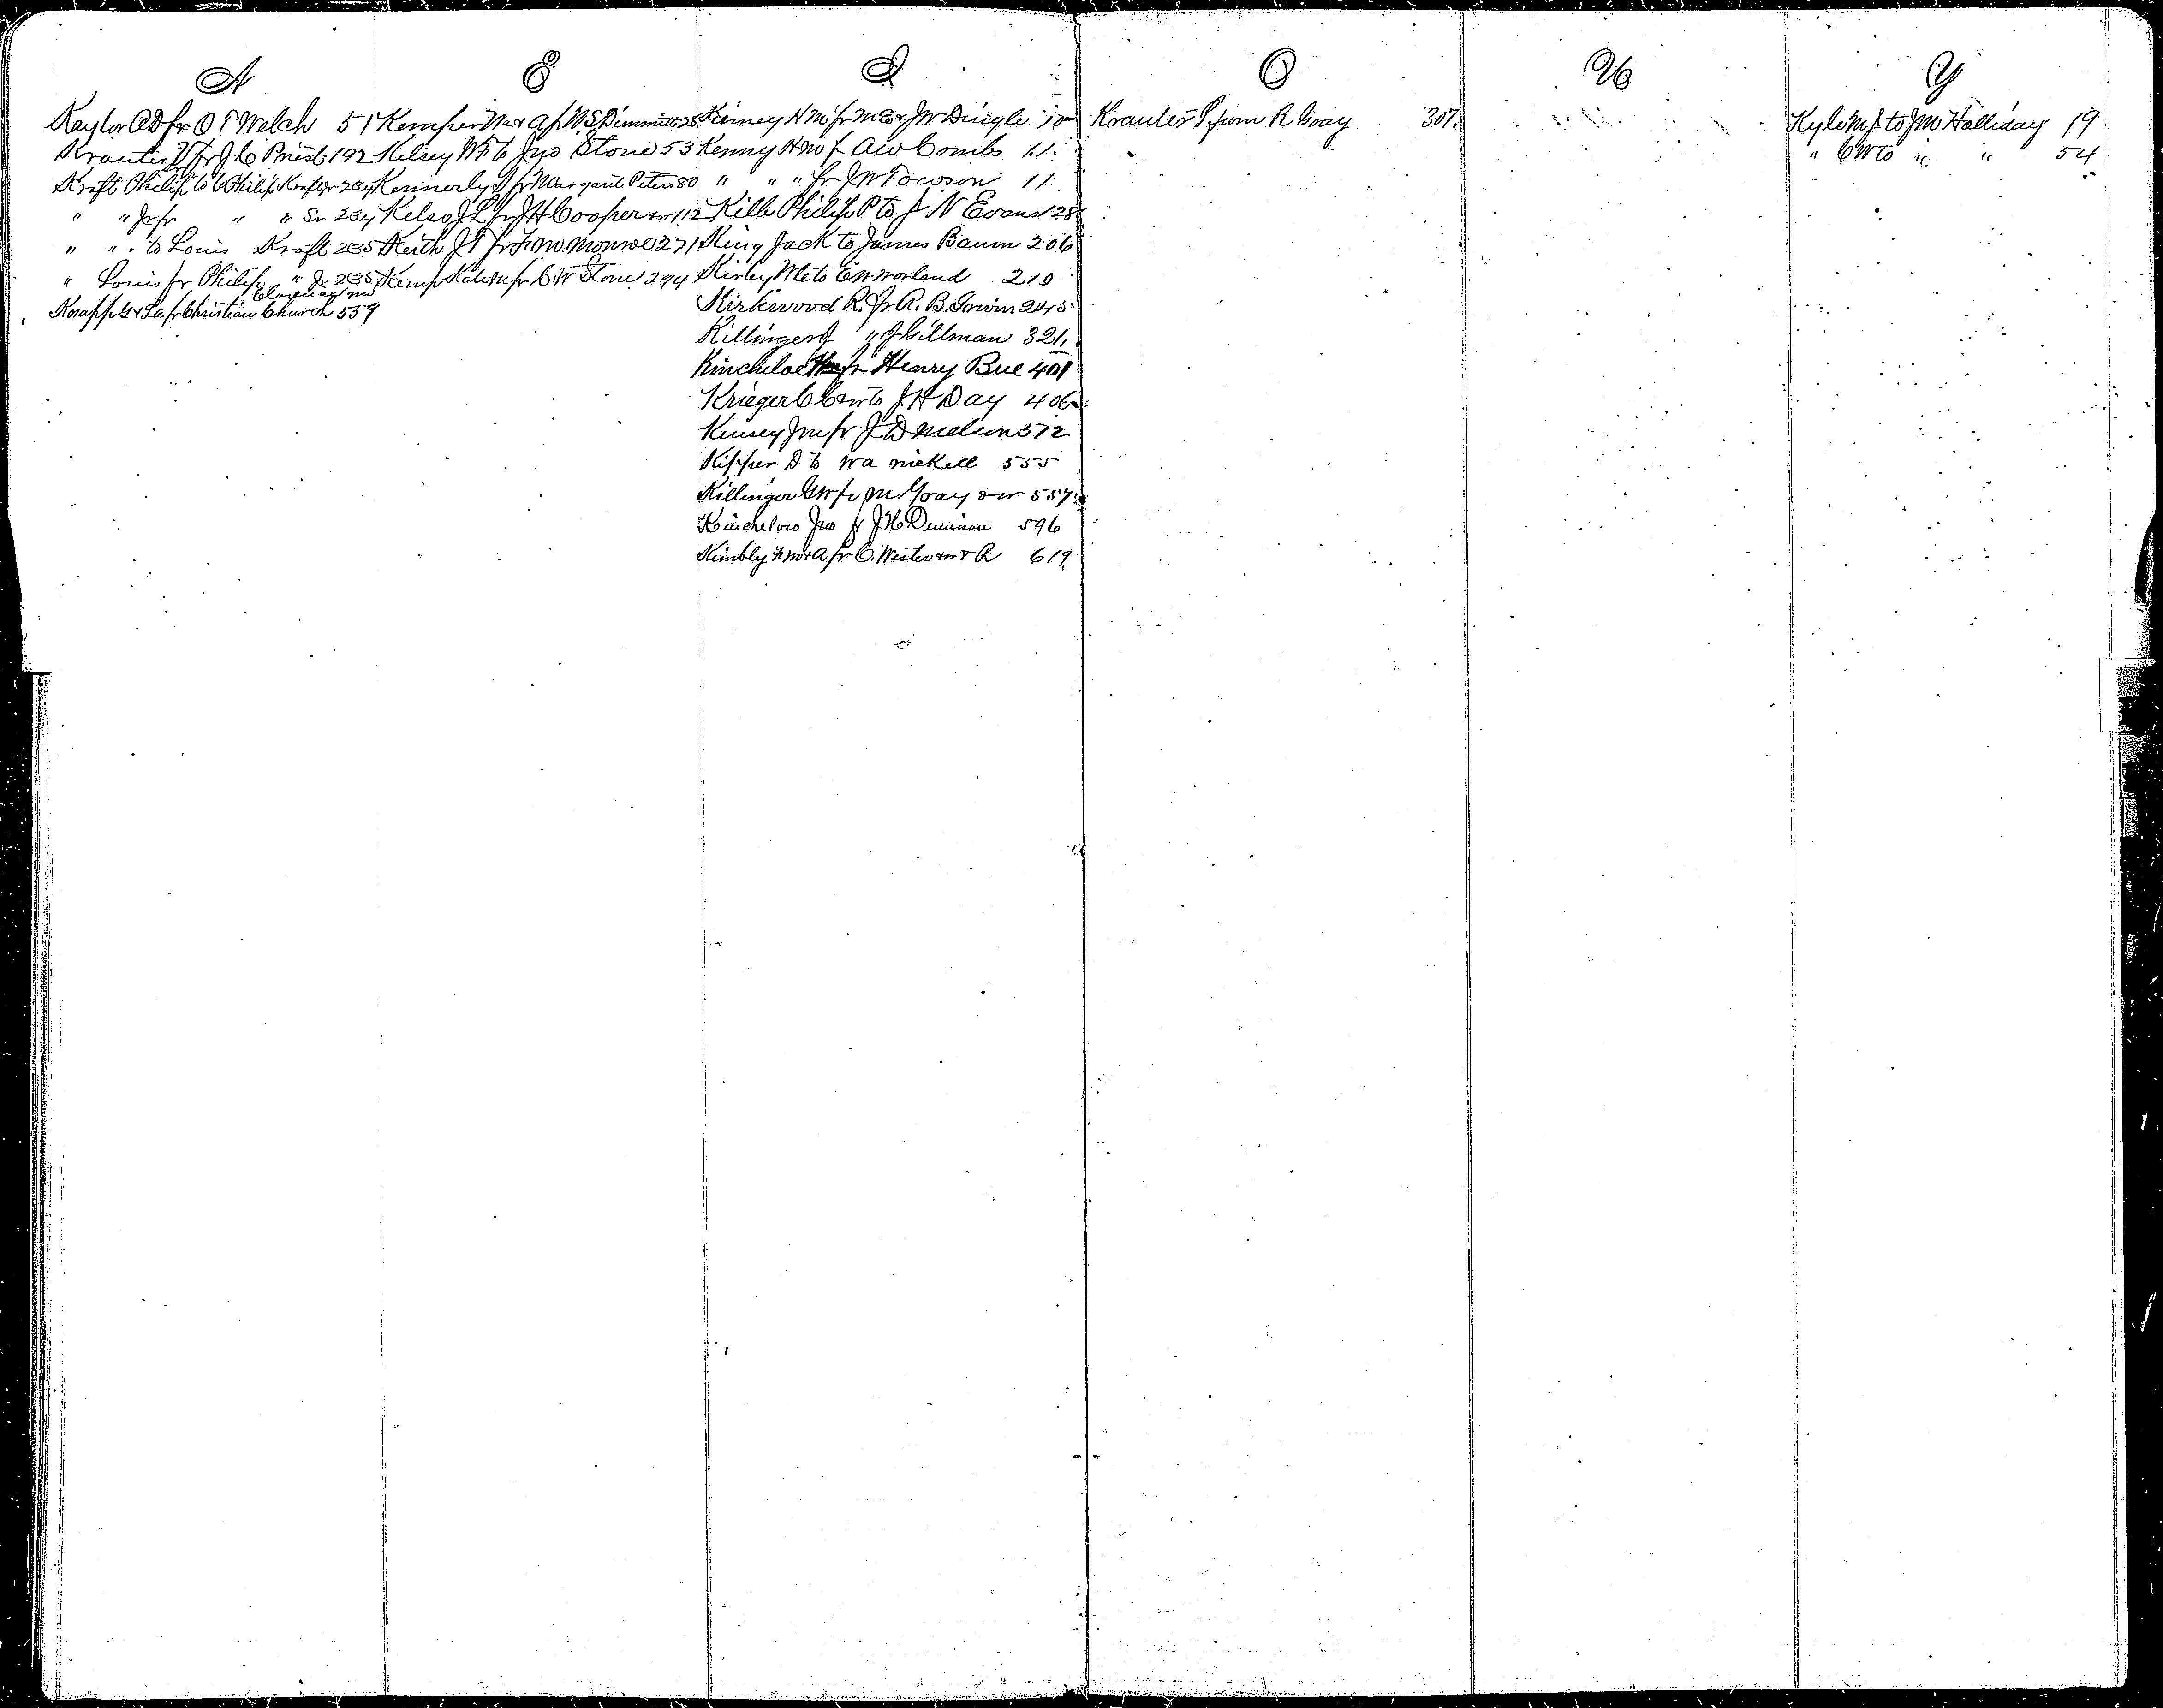 A
Kaylor A D fr O T Welch 51
Krauter J fr J C Priest 192
Kraft Philip to C Philip Kraft Jr 234
" " Jr fr " " Sr 234
" " " to Louis Kraft 235
" Louis fr Philip " Jr 235
Knapp & La fr Christian Church 559
E
Kemper & A fr W S Dimmitt 28
Kelsey W F to Jno Stone 53
Kennerly J fr Margaret Peters 80
Kelso J L fr J H Cooper 112
Keith J T fr F M Monroe 271
Kemp Kate M fr C W Stone 294
I
Kinney H M fr M E & J W Dingle 10
Kenny H M f A W Combs 11
" " " fr J W Towson 11
Kille Philip P to J N Evans 128
King Jack to James Baum 206
Kirby to E W Worland 210
Kirkwood R. fr R. B. Irwin 243
Killinger J " J Gillman 321
Kincheloe fr Henry Bue 401
Krieger C C to J H Day 406
Kinsey Jno fr J D Nelson 572
Kipper D to W A Nickell 555
Killinger G W fr M Gray 557
Kincheloe Jno fr J H Dennison 596
Kimbly & A fr C. & R 619
O
Krauter P from R Gray 307
U
Y
Kyle M J to J M Halliday 19
" C W to " " 54